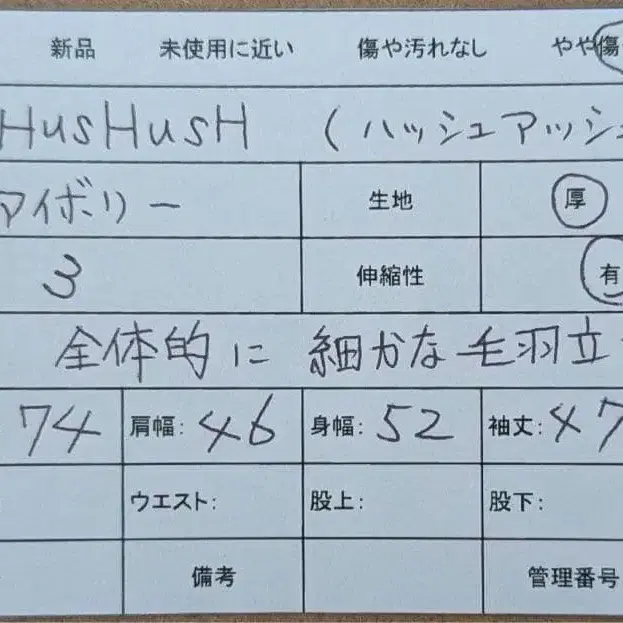 新品 未使用に近い 傷や汚れなし やや傷
HusHusH (ハッシュアッシュ
アイボリー 生地 厚
3 伸縮性 有
全体的に 細かな毛羽立
74 肩幅: 46 身幅: 52 袖丈: 47
ウエスト: 股上: 股下:
備考 管理番号